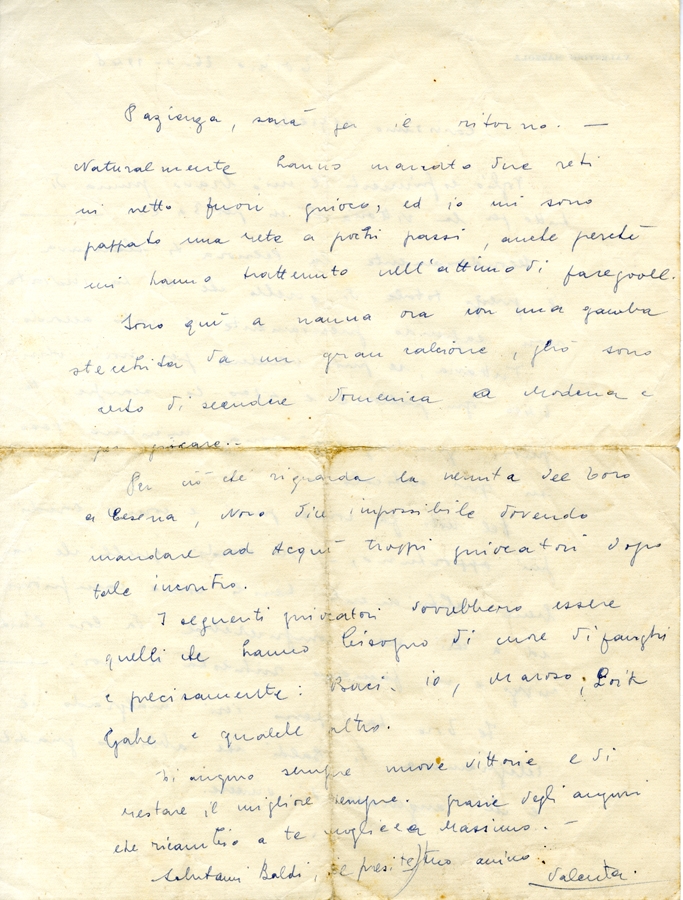 Pazienza, sarà per il ritorno. —
Naturalmente hanno marcato due reti
in netto fuori guioco, ed io mi sono
pappato una rete a pochi passi, anche perchè
mi hanno trattenuto nell'attimo di fare goal.
Sono quì a nanna ora con una gamba
stecchita da un gran calcione, però sono
certo di scendere domenica a Modena e
per giocare..
Per ciò che riguarda la venuta del Toro
a Cesena, Novo dice impossibile dovendo
mandare ad Acqui troppi guiocatori dopo
tale incontro.
I seguenti guiocatori dovrebbero essere
quelli che hanno bisogno di cure di fanghi
e precisamente: Baci. io, Maroso, Loik
Gabe e qualche altro.
Ti auguro sempre nuove vittorie e di
restare il migliore sempre. grazie degli auguri
che ricambio a te moglie e a Massimo. —
Salutami Baldi, tuo amico.
Valenta.